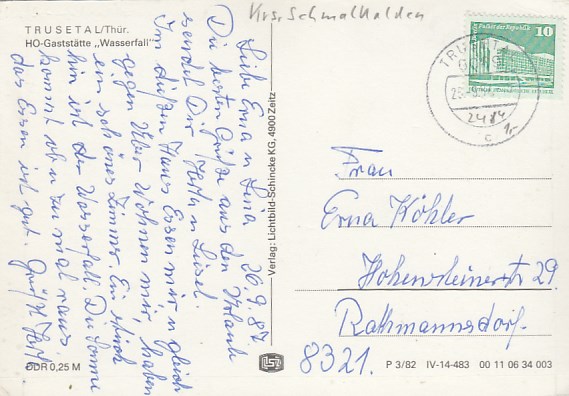 Krs. Schmalkalden
TRUSETAL/Thür.
HO-Gaststätte „Wasserfall"
26.9.87.
Liebe Erna u Lina
Die besten Grüße aus dem Urlaub
sendet Dir Herta u Liesel.
In diesem Haus Essen wir, u gleich
gegen Über Wohnen wir, haben
ein schönes Zimmer. Ein stück
hin ist der Wasserfall. Die Sonne
kommt ab u zu mal raus,
das Essen ist gut.
DDR 0,25 M
Verlag: Lichtbild-Schincke KG, 4900 Zeitz
10
Palast der Republik
2484
c
Frau
Erna Köhler
Hohensteinerstr 29
Rathmannsdorf.
8321.
P 3/82 IV-14-483 00 11 06 34 003